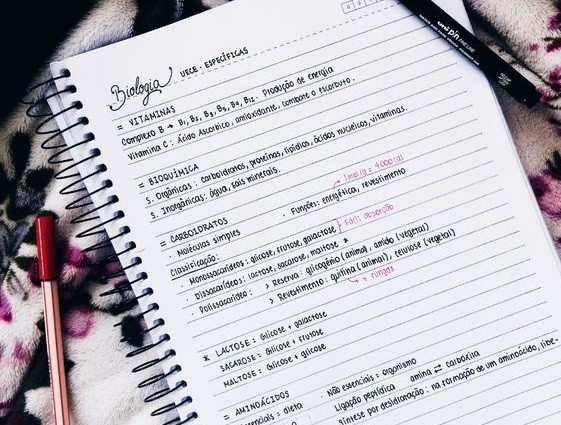 Biologia UECE - ESPECÍFICAS
= VITAMINAS
Complexo B → B1, B2, B3, B5, B6, B12. Produção de energia
Vitamina C: Ácido Ascorbico, antioxidante, combate o escorbuto.
= BIOQUÍMICA
S. Orgânicas: carboidratos, proteínas, lipídios, ácidos nucleicos, vitaminas.
S. Inorgânicas: água, sais minerais.
1mol/g = 4000cal
= CARBOIDRATOS
· Moléculas simples · Funções: energética, revestimento
Classificação:
· Monossacarídeos: glicose, frutose, galactose } Fácil absorção
· Dissacarídeos: lactose, sacarose, maltose *
· Polissacarídeo: > Reserva: glicogênio (animal), amido (vegetal)
> Revestimento: quitina (animal), celulose (vegetal)
→ + fungos
* LACTOSE = Glicose + galactose
SACAROSE = Glicose + frutose
MALTOSE = Glicose + glicose
= AMINOÁCIDOS
essenciais = dieta · Não essenciais = organismo
Ligação peptídica amina ⇄ carboxila
Síntese por desidratação: na formação de um aminoácido, libe-
uni pin FINE LINE